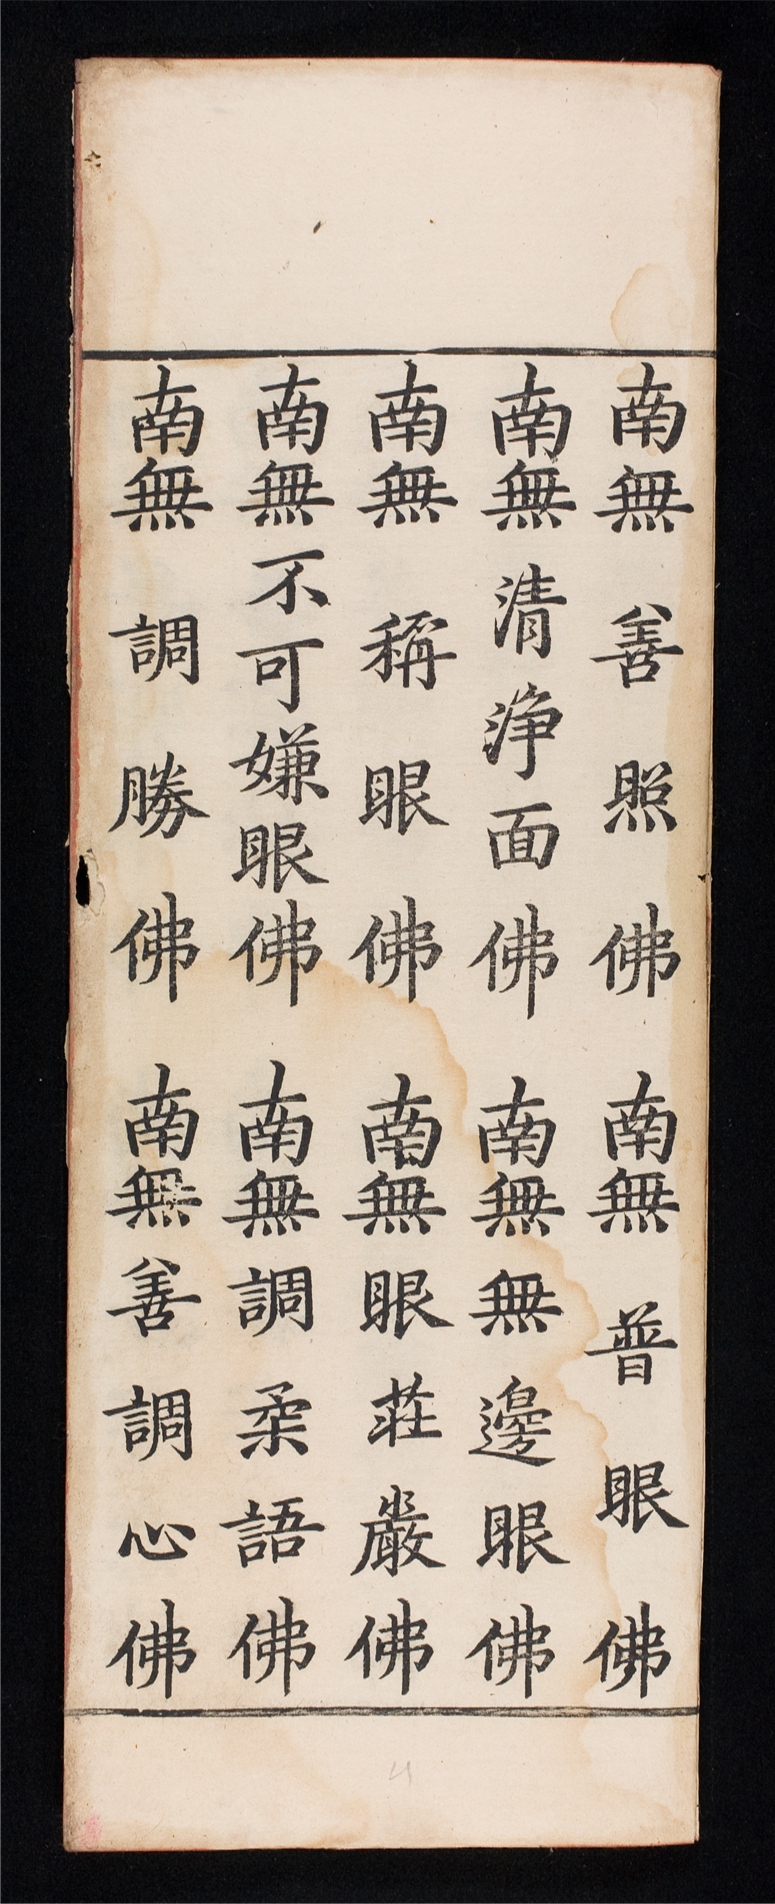 南無善照佛南無普眼佛
南無清浄面佛南無無邊眼佛
南無稱眼佛南無眼莊嚴佛
南無不可嫌眼佛南無調柔語佛
南無調勝佛南無善調心佛